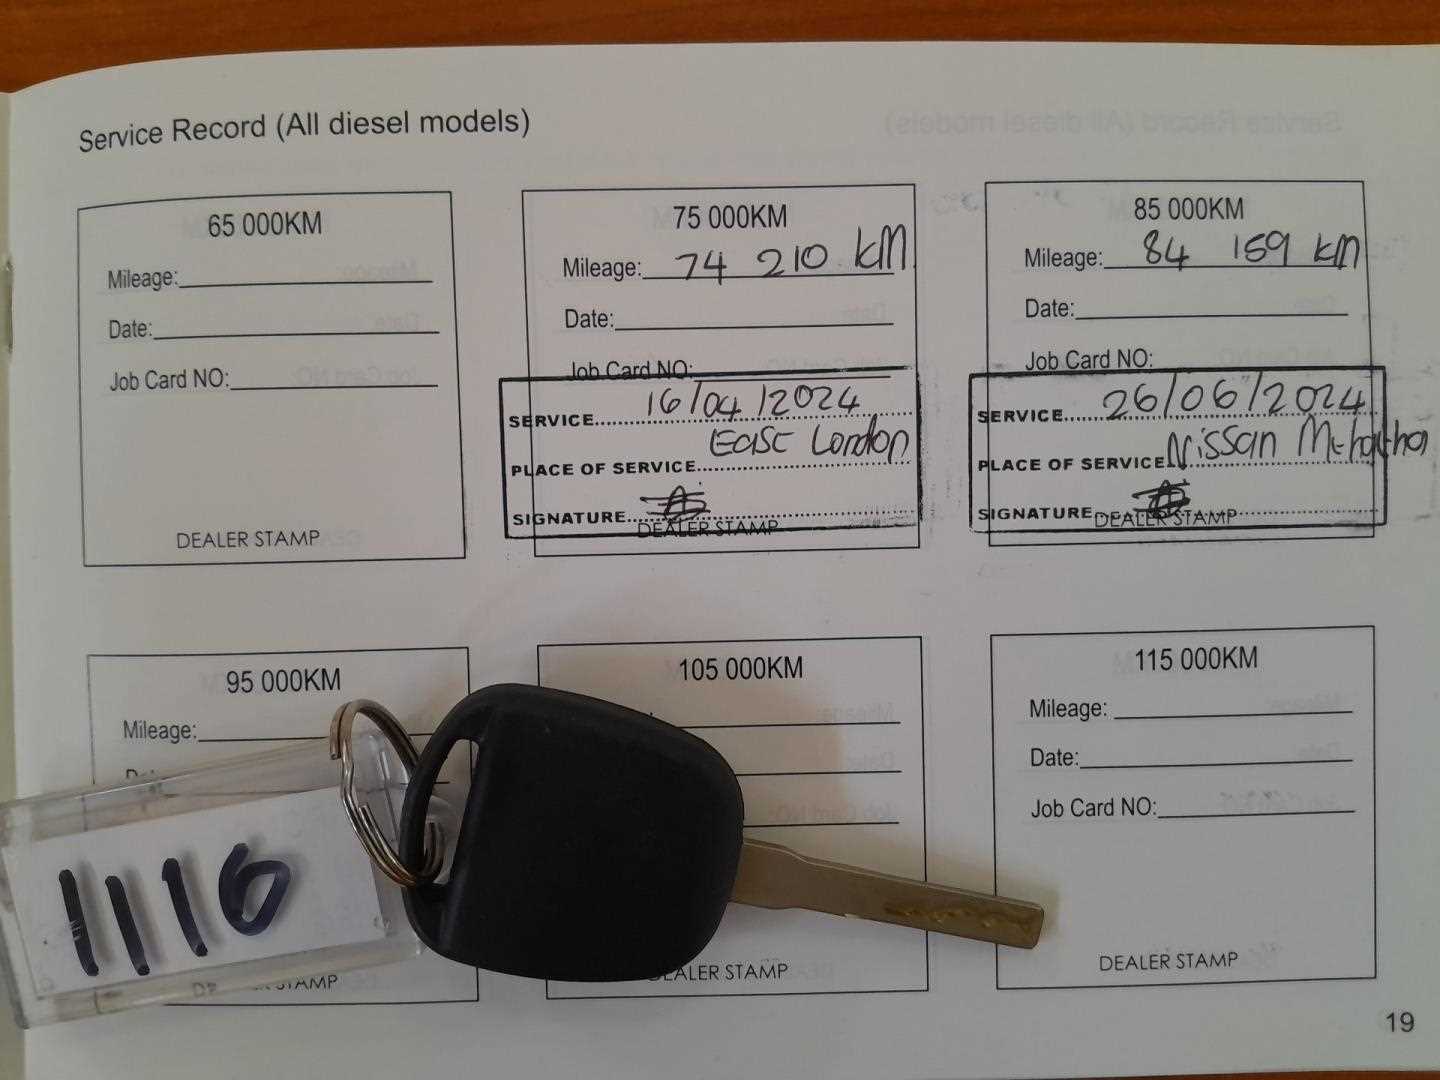 Service Record (All diesel models)
65 000KM
Mileage:
Date:
Job Card NO:
DEALER STAMP
75 000KM
Mileage: 74 210 KM
Date:
Job Card NO:
SERVICE 16/04/2024
PLACE OF SERVICE East London
SIGNATURE
DEALER STAMP
85 000KM
Mileage: 84 159 KM
Date:
Job Card NO:
SERVICE 26/06/2024
PLACE OF SERVICE Nissan Mthatha
SIGNATURE
DEALER STAMP
95 000KM
Mileage:
105 000KM
DEALER STAMP
115 000KM
Mileage:
Date:
Job Card NO:
DEALER STAMP
1116
19